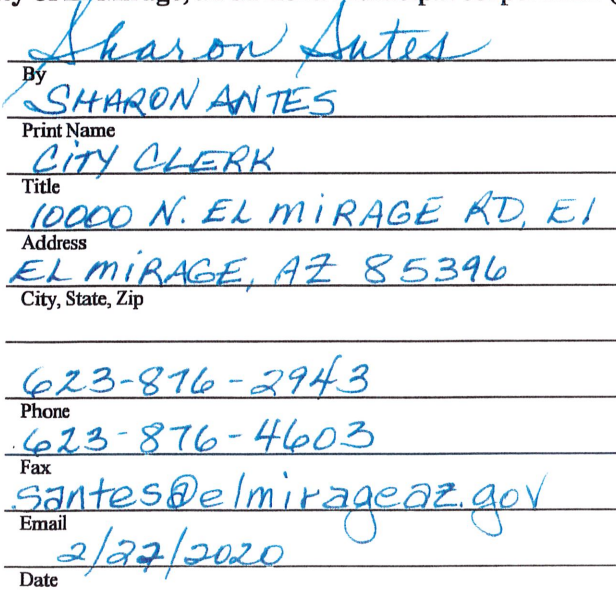 Sharon Antes
By
SHARON ANTES
Print Name
CITY CLERK
Title
10000 N. EL MIRAGE RD, E1
Address
EL MIRAGE, AZ 85396
City, State, Zip
623-876-2943
Phone
623-876-4603
Fax
santes@elmirageaz.gov
Email
2/27/2020
Date